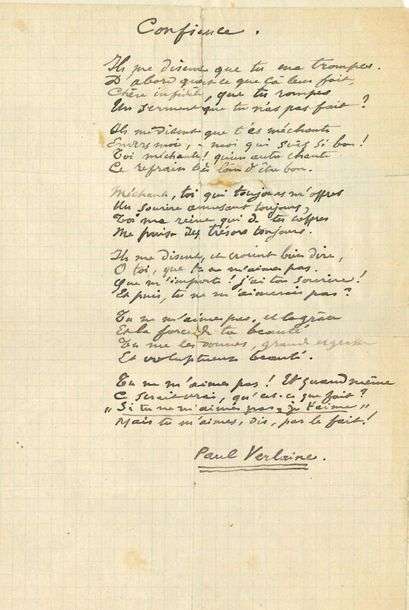 Confience.
Ils me disent que tu me trompes.
D'abord qu'est-ce que ça leur fait,
Chère infidèle, que tu rompes
Un serment que tu n'as pas fait ?
Ils me disent que t'es méchante
Envers moi, – moi qui suis si bon !
Toi méchante ! qu'un autre chante
Ce refrain très loin d'être bon.
Méchante, toi qui toujours m'offres
Un sourire amusant toujours,
Toi ma reine qui de tes coffres
Me puise des trésors toujours.
Ils me disent, et croient bien dire,
O toi, que tu ne m'aimes pas.
Que m'importe ! j'ai ton sourire !
Et puis, tu ne m'aimerais pas ?
Tu ne m'aimes pas, et la grâce
Et la force de ta beauté
Tu me les donnes, grande
Et voluptueuse beauté.
Tu ne m'aimes pas ! Et quand même
Ce serait vrai, qu'est-ce que fait ?
" Si tu ne m'aimes pas, je t'aime "
Mais tu m'aimes, dis, par le fait !
Paul Verlaine.